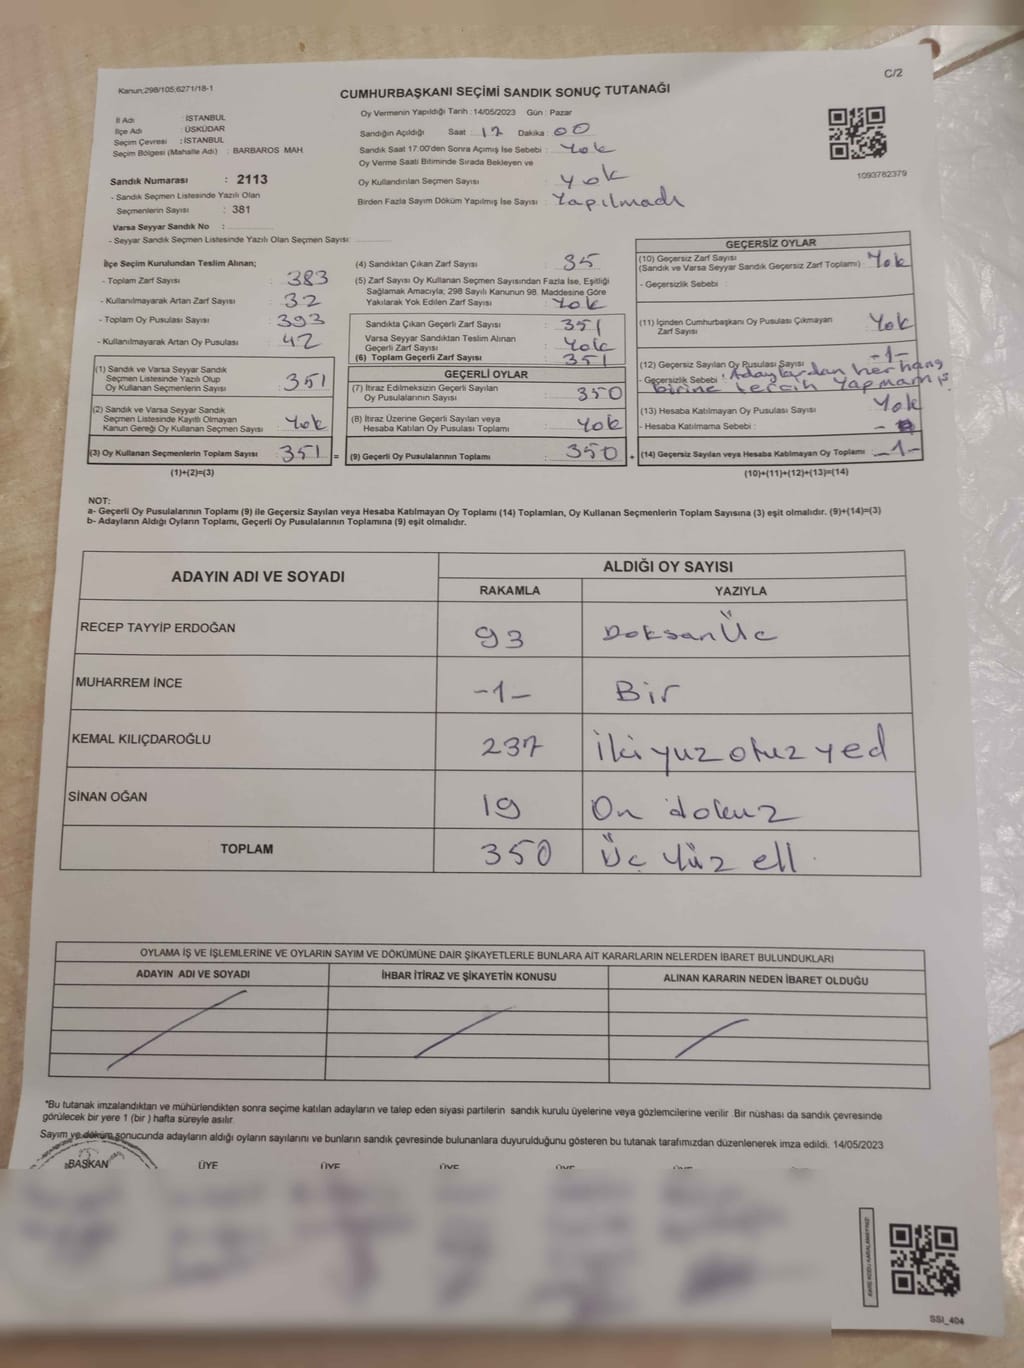 Kanun;298/105;6271/18-1
C/2
CUMHURBAŞKANI SEÇİMİ SANDIK SONUÇ TUTANAĞI
İl Adı : İSTANBUL
İlçe Adı : ÜSKÜDAR
Seçim Çevresi : İSTANBUL
Seçim Bölgesi (Mahalle Adı) : BARBAROS MAH.
Sandık Numarası : 2113
- Sandık Seçmen Listesinde Yazılı Olan
Seçmenlerin Sayısı : 381
Varsa Seyyar Sandık No :
- Seyyar Sandık Seçmen Listesinde Yazılı Olan Seçmen Sayısı:
Oy Vermenin Yapıldığı Tarih : 14/05/2023 Gün : Pazar
Sandığın Açıldığı Saat : 17 Dakika : 00
Sandık Saat 17:00'den Sonra Açımış İse Sebebi : Yok
Oy Verme Saati Bitiminde Sırada Bekleyen ve
Oy Kullandırılan Seçmen Sayısı : Yok
Birden Fazla Sayım Döküm Yapılmış İse Sayısı : Yapılmadı
1093782379
İlçe Seçim Kurulundan Teslim Alınan;
- Toplam Zarf Sayısı : 383
- Kullanılmayarak Artan Zarf Sayısı : 32
- Toplam Oy Pusulası Sayısı : 393
- Kullanılmayarak Artan Oy Pusulası : 42
(1) Sandık ve Varsa Seyyar Sandık
Seçmen Listesinde Yazılı Olup
Oy Kullanan Seçmenlerin Sayısı : 351
(2) Sandık ve Varsa Seyyar Sandık
Seçmen Listesinde Kayıtlı Olmayan
Kanun Gereği Oy Kullanan Seçmen Sayısı : Yok
(3) Oy Kullanan Seçmenlerin Toplam Sayısı : 351 =
(1)+(2)=(3)
(4) Sandıktan Çıkan Zarf Sayısı : 35
(5) Zarf Sayısı Oy Kullanan Seçmen Sayısından Fazla İse, Eşitliği
Sağlamak Amacıyla; 298 Sayılı Kanunun 98. Maddesine Göre
Yakılarak Yok Edilen Zarf Sayısı : Yok
Sandıkta Çıkan Geçerli Zarf Sayısı : 351
Varsa Seyyar Sandıktan Teslim Alınan
Geçerli Zarf Sayısı : Yok
(6) Toplam Geçerli Zarf Sayısı : 351
GEÇERLİ OYLAR
(7) İtiraz Edilmeksizin Geçerli Sayılan
Oy Pusulasının Sayıları : 350
(8) İtiraz Üzerine Geçerli Sayılan veya
Hesaba Katılan Oy Pusulası Toplamı : Yok
(9) Geçerli Oy Pusulalarının Toplamı : 350 +
GEÇERSİZ OYLAR
(10) Geçersiz Zarf Sayısı
(Sandık ve Varsa Seyyar Sandık Geçersiz Zarf Toplamı) : Yok
- Geçersizlik Sebebi :
(11) İçinden Cumhurbaşkanı Oy Pusulası Çıkmayan
Zarf Sayısı : Yok
(12) Geçersiz Sayılan Oy Pusulası Sayısı : -1-
- Geçersizlik Sebebi : Adaylardan her hang
birine tercih yapmamış
(13) Hesaba Katılmayan Oy Pusulası Sayısı : Yok
- Hesaba Katılmama Sebebi :
(14) Geçersiz Sayılan veya Hesaba Katılmayan Oy Toplamı : -1-
(10)+(11)+(12)+(13)=(14)
NOT:
a- Geçerli Oy Pusulalarının Toplamı (9) ile Geçersiz Sayılan veya Hesaba Katılmayan Oy Toplamı (14) Toplamları, Oy Kullanan Seçmenlerin Toplam Sayısına (3) eşit olmalıdır. (9)+(14)=(3)
b- Adayların Aldığı Oyların Toplamı, Geçerli Oy Pusulalarının Toplamına (9) eşit olmalıdır.
ADAYIN ADI VE SOYADI
ALDIĞI OY SAYISI
RAKAMLA YAZIYLA
RECEP TAYYİP ERDOĞAN 93 Doksan Üc
MUHARREM İNCE -1- Bir
KEMAL KILIÇDAROĞLU 237 İki yuz otuz yed
SİNAN OĞAN 19 On dokuz
TOPLAM 350 Üç Yüz ell
OYLAMA İŞ VE İŞLEMLERİNE VE OYLARIN SAYIM VE DÖKÜMÜNE DAİR ŞİKAYETLERLE BUNLARA AİT KARARLARIN NELERDEN İBARET BULUNDUKLARI
ADAYIN ADI VE SOYADI İHBAR İTİRAZ VE ŞİKAYETİN KONUSU ALINAN KARARIN NEDEN İBARET OLDUĞU
*Bu tutanak imzalandıktan ve mühürlendikten sonra seçime katılan adayların ve talep eden siyasi partilerin sandık kurulu üyelerine veya gözlemcilerine verilir. Bir nüshası da sandık çevresinde
görülecek bir yere 1 (bir ) hafta süreyle asılır.
Sayım ve döküm sonucunda adayların aldığı oyların sayılarını ve bunların sandık çevresinde bulunanlara duyurulduğunu gösteren bu tutanak tarafımızdan düzenlenerek imza edildi. 14/05/2023
BAŞKAN ÜYE ÜYE ÜYE ÜYE ÜYE
SSI_404